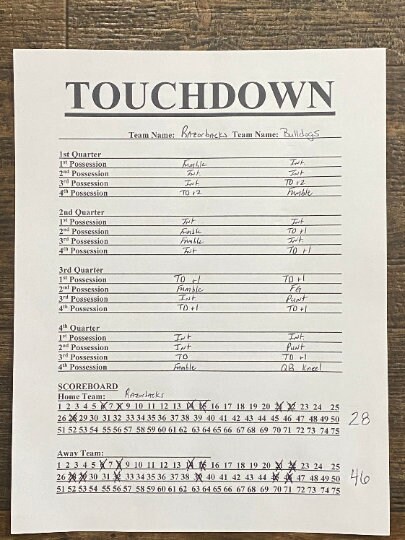 TOUCHDOWN
Team Name: Razorbacks Team Name: Bulldogs
1st Quarter
1st Possession Fumble Int.
2nd Possession Int Int
3rd Possession Int TD +2
4th Possession TD +2 Fumble
2nd Quarter
1st Possession Int Int
2nd Possession Fumble TD +1
3rd Possession Fumble Int
4th Possession Int TD +1
3rd Quarter
1st Possession TD +1 TD +1
2nd Possession Fumble FG
3rd Possession Int Punt
4th Possession TD +1 TD +1
4th Quarter
1st Possession Int Int.
2nd Possession Int Punt
3rd Possession TD TD +1
4th Possession Fumble QB Kneel
SCOREBOARD
Home Team: Razorbacks
1 2 3 4 5 7 9 10 11 12 13 16 17 18 19 20 23 24 25
26 29 30 31 32 33 34 35 36 37 38 39 40 41 42 43 44 45 46 47 48 49 50 28
51 52 53 54 55 56 57 58 59 60 61 62 63 64 65 66 67 68 69 70 71 72 73 74 75
Away Team:
1 2 3 4 5 7 9 10 11 12 13 16 17 18 19 20 23 24 25
26 30 31 33 34 35 36 37 38 40 41 42 43 44 47 48 49 50 46
51 52 53 54 55 56 57 58 59 60 61 62 63 64 65 66 67 68 69 70 71 72 73 74 75